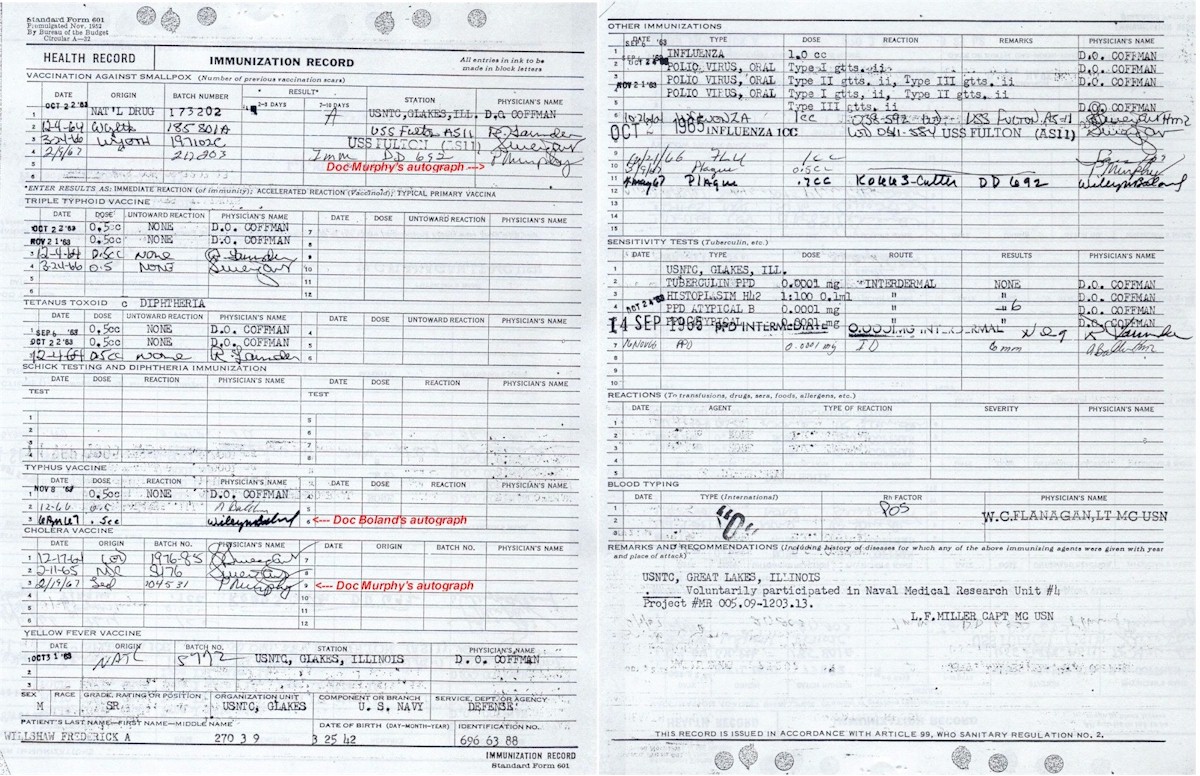 Standard Form 601
Promulgated Nov. 1952
By Bureau of the Budget
Circular A—32
HEALTH RECORD
IMMUNIZATION RECORD
All entries in ink to be
made in block letters
VACCINATION AGAINST SMALLPOX (Number of previous vaccination scars)
DATE ORIGIN BATCH NUMBER RESULT* STATION PHYSICIAN'S NAME
2-3 DAYS 7-10 DAYS
1 OCT 22 '63 NAT'L DRUG 173202 A USNTC,GLAKES,ILL. D.O. COFFMAN
2 12-4-64 Wyeth 185801A USS Fulton AS11 R Saunders
3 3-24-66 Wyeth 197102C USS FULTON (AS11)
4 2/9/67 217203 Imm DD 692 Murphy
5
6
Doc Murphy's autograph --->
*ENTER RESULTS AS: IMMEDIATE REACTION (of immunity); ACCELERATED REACTION (Vaccinoid); TYPICAL PRIMARY VACCINA
TRIPLE TYPHOID VACCINE
DATE DOSE UNTOWARD REACTION PHYSICIAN'S NAME DATE DOSE UNTOWARD REACTION PHYSICIAN'S NAME
OCT 2 '63 0.5cc NONE D.O. COFFMAN 7
NOV 21 '63 0.5cc NONE D.O. COFFMAN 8
3 12-4-64 0.5cc NONE R Saunders 9
4 3-24-66 0.5 NONE 10
5 11
6 12
TETANUS TOXOID c DIPHTHERIA
DATE DOSE UNTOWARD REACTION PHYSICIAN'S NAME DATE DOSE UNTOWARD REACTION PHYSICIAN'S NAME
1 SEP 6 '63 0.5cc NONE D.O. COFFMAN 4
2 OCT 22 '63 0.5cc NONE D.O. COFFMAN 5
3 12-4-64 0.5cc NONE R Saunders 6
SCHICK TESTING AND DIPHTHERIA IMMUNIZATION
DATE DOSE REACTION PHYSICIAN'S NAME DATE DOSE REACTION PHYSICIAN'S NAME
TEST TEST
1 5
2 6
3 7
4 8
TYPHUS VACCINE
DATE DOSE REACTION PHYSICIAN'S NAME DATE DOSE REACTION PHYSICIAN'S NAME
1 NOV 8 '63 0.5cc NONE D.O. COFFMAN 4
2 0.5 5
3 .5cc Wiley Boland 6 <--- Doc Boland's autograph
CHOLERA VACCINE
DATE ORIGIN BATCH NO. PHYSICIAN'S NAME DATE ORIGIN BATCH NO. PHYSICIAN'S NAME
1 12-17-64 1976-85 7
2 2-11-65 8
3 2/19/67 104531 Murphy 9 <--- Doc Murphy's autograph
4 10
5 11
6 12
YELLOW FEVER VACCINE
DATE ORIGIN BATCH NO. STATION PHYSICIAN'S NAME
1 OCT 31 '63 5772 USNTC, GLAKES, ILLINOIS D. O. COFFMAN
2
3
SEX RACE GRADE, RATING OR POSITION ORGANIZATION UNIT COMPONENT OR BRANCH SERVICE, DEPT. OR AGENCY
M SR USNTC, GLAKES U. S. NAVY DEFENSE
PATIENT'S LAST NAME—FIRST NAME—MIDDLE NAME DATE OF BIRTH (DAY-MONTH-YEAR) IDENTIFICATION NO.
WILLSHAW FREDERICK A 270 3 9 3 25 42 696 63 88
IMMUNIZATION RECORD
Standard Form 601
OTHER IMMUNIZATIONS
DATE TYPE DOSE REACTION REMARKS PHYSICIAN'S NAME
1 SEP 6 '63 INFLUENZA 1.0 cc D.O. COFFMAN
2 POLIO VIRUS, ORAL Type I gtts. ii D.O. COFFMAN
3 OCT 24 '63 POLIO VIRUS, ORAL Type II gtts. ii, Type III gtts. ii D.O. COFFMAN
NOV 21 '63 POLIO VIRUS, ORAL Type I gtts. ii, Type II gtts. ii
Type III gtts. ii D.O. COFFMAN
INFLUENZA 1cc USS FULTON AS-11
OCT 1965 INFLUENZA 1CC USS FULTON (AS11)
9 Flu 1cc
10 Plague 0.5cc Murphy
11 Plague .2cc Cutter DD 692 Wiley Boland
12
13
14
15
SENSITIVITY TESTS (Tuberculin, etc.)
DATE TYPE DOSE ROUTE RESULTS PHYSICIAN'S NAME
1 USNTC, GLAKES, ILL.
2 TUBERCULIN PPD 0.0001 mg INTERDERMAL NONE D.O. COFFMAN
3 HISTOPLASIM H42 1:100 0.1ml " " D.O. COFFMAN
4 OCT 24 '63 PPD ATYPICAL B 0.0001 mg " 6 D.O. COFFMAN
D.O. COFFMAN
14 SEP 1965 PPD INTERMEDIATE 0.0001MG INTERDERMAL Neg R Saunders
7 16 Nov 66 PPD 0.0001 mg ID 6mm
8
9
10
REACTIONS (To transfusions, drugs, sera, foods, allergens, etc.)
DATE AGENT TYPE OF REACTION SEVERITY PHYSICIAN'S NAME
1
2
3
4
5
BLOOD TYPING
DATE TYPE (International) Rh FACTOR PHYSICIAN'S NAME
1 "O" POS
2 W.C.FLANAGAN,LT MC USN
3
REMARKS AND RECOMMENDATIONS (Including history of diseases for which any of the above immunising agents were given with year
and place of attack)
USNTC, GREAT LAKES, ILLINOIS
Voluntarily participated in Naval Medical Research Unit #4
Project #MR 005.09-1203.13.
L.F.MILLER CAPT MC USN
THIS RECORD IS ISSUED IN ACCORDANCE WITH ARTICLE 99, WHO SANITARY REGULATION NO. 2.